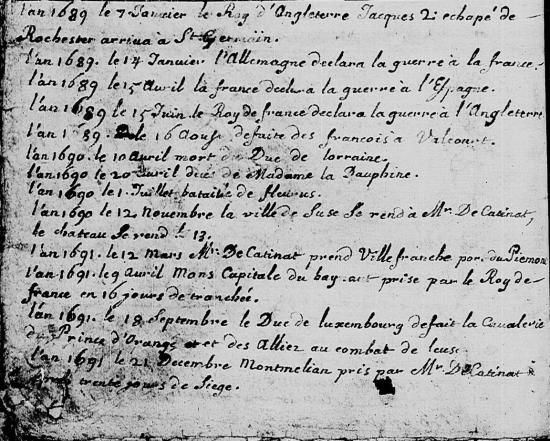 l'an 1689 le 7 Janvier le Roy d'Angleterre Jacques 2e echapé de
Rochester arriva à St Germain.
l'an 1689. le 14 Janvier l'Allemagne declara la guerre à la france.
l'an 1689 le 15 Avril la france declara la guerre à l'Espagne.
l'an 1689 le 15 Juin le Roy de france declara la guerre à l'Angleterre
l'an 1689. le 16 Aoust defaite des francois à Valcourt.
l'an 1690. le 10 Avril mort du Duc de lorraine.
l'an 1690 le 20 Avril de Madame la Dauphine.
l'an 1690 le 1. Juillet bataille de fleurus.
l'an 1690 le 12 Novembre la ville de Suse se rend à Mr. De Catinat,
le chateau se rend le 13.
l'an 1691. le 12 Mars Mr. De Catinat prend Ville franche du Piemont
l'an 1691. le 9 Avril Mons Capitale du prise par le Roy de
france en 16 jours de tranchée.
l'an 1691. le 18 Septembre le Duc de luxembourg defait la Cavalerie
du Prince d'Orange et des Alliez au combat de leuse
l'an 1691 le 21 Decembre Montmelian pris par Mr. De Catinat
trente jours de Siege.